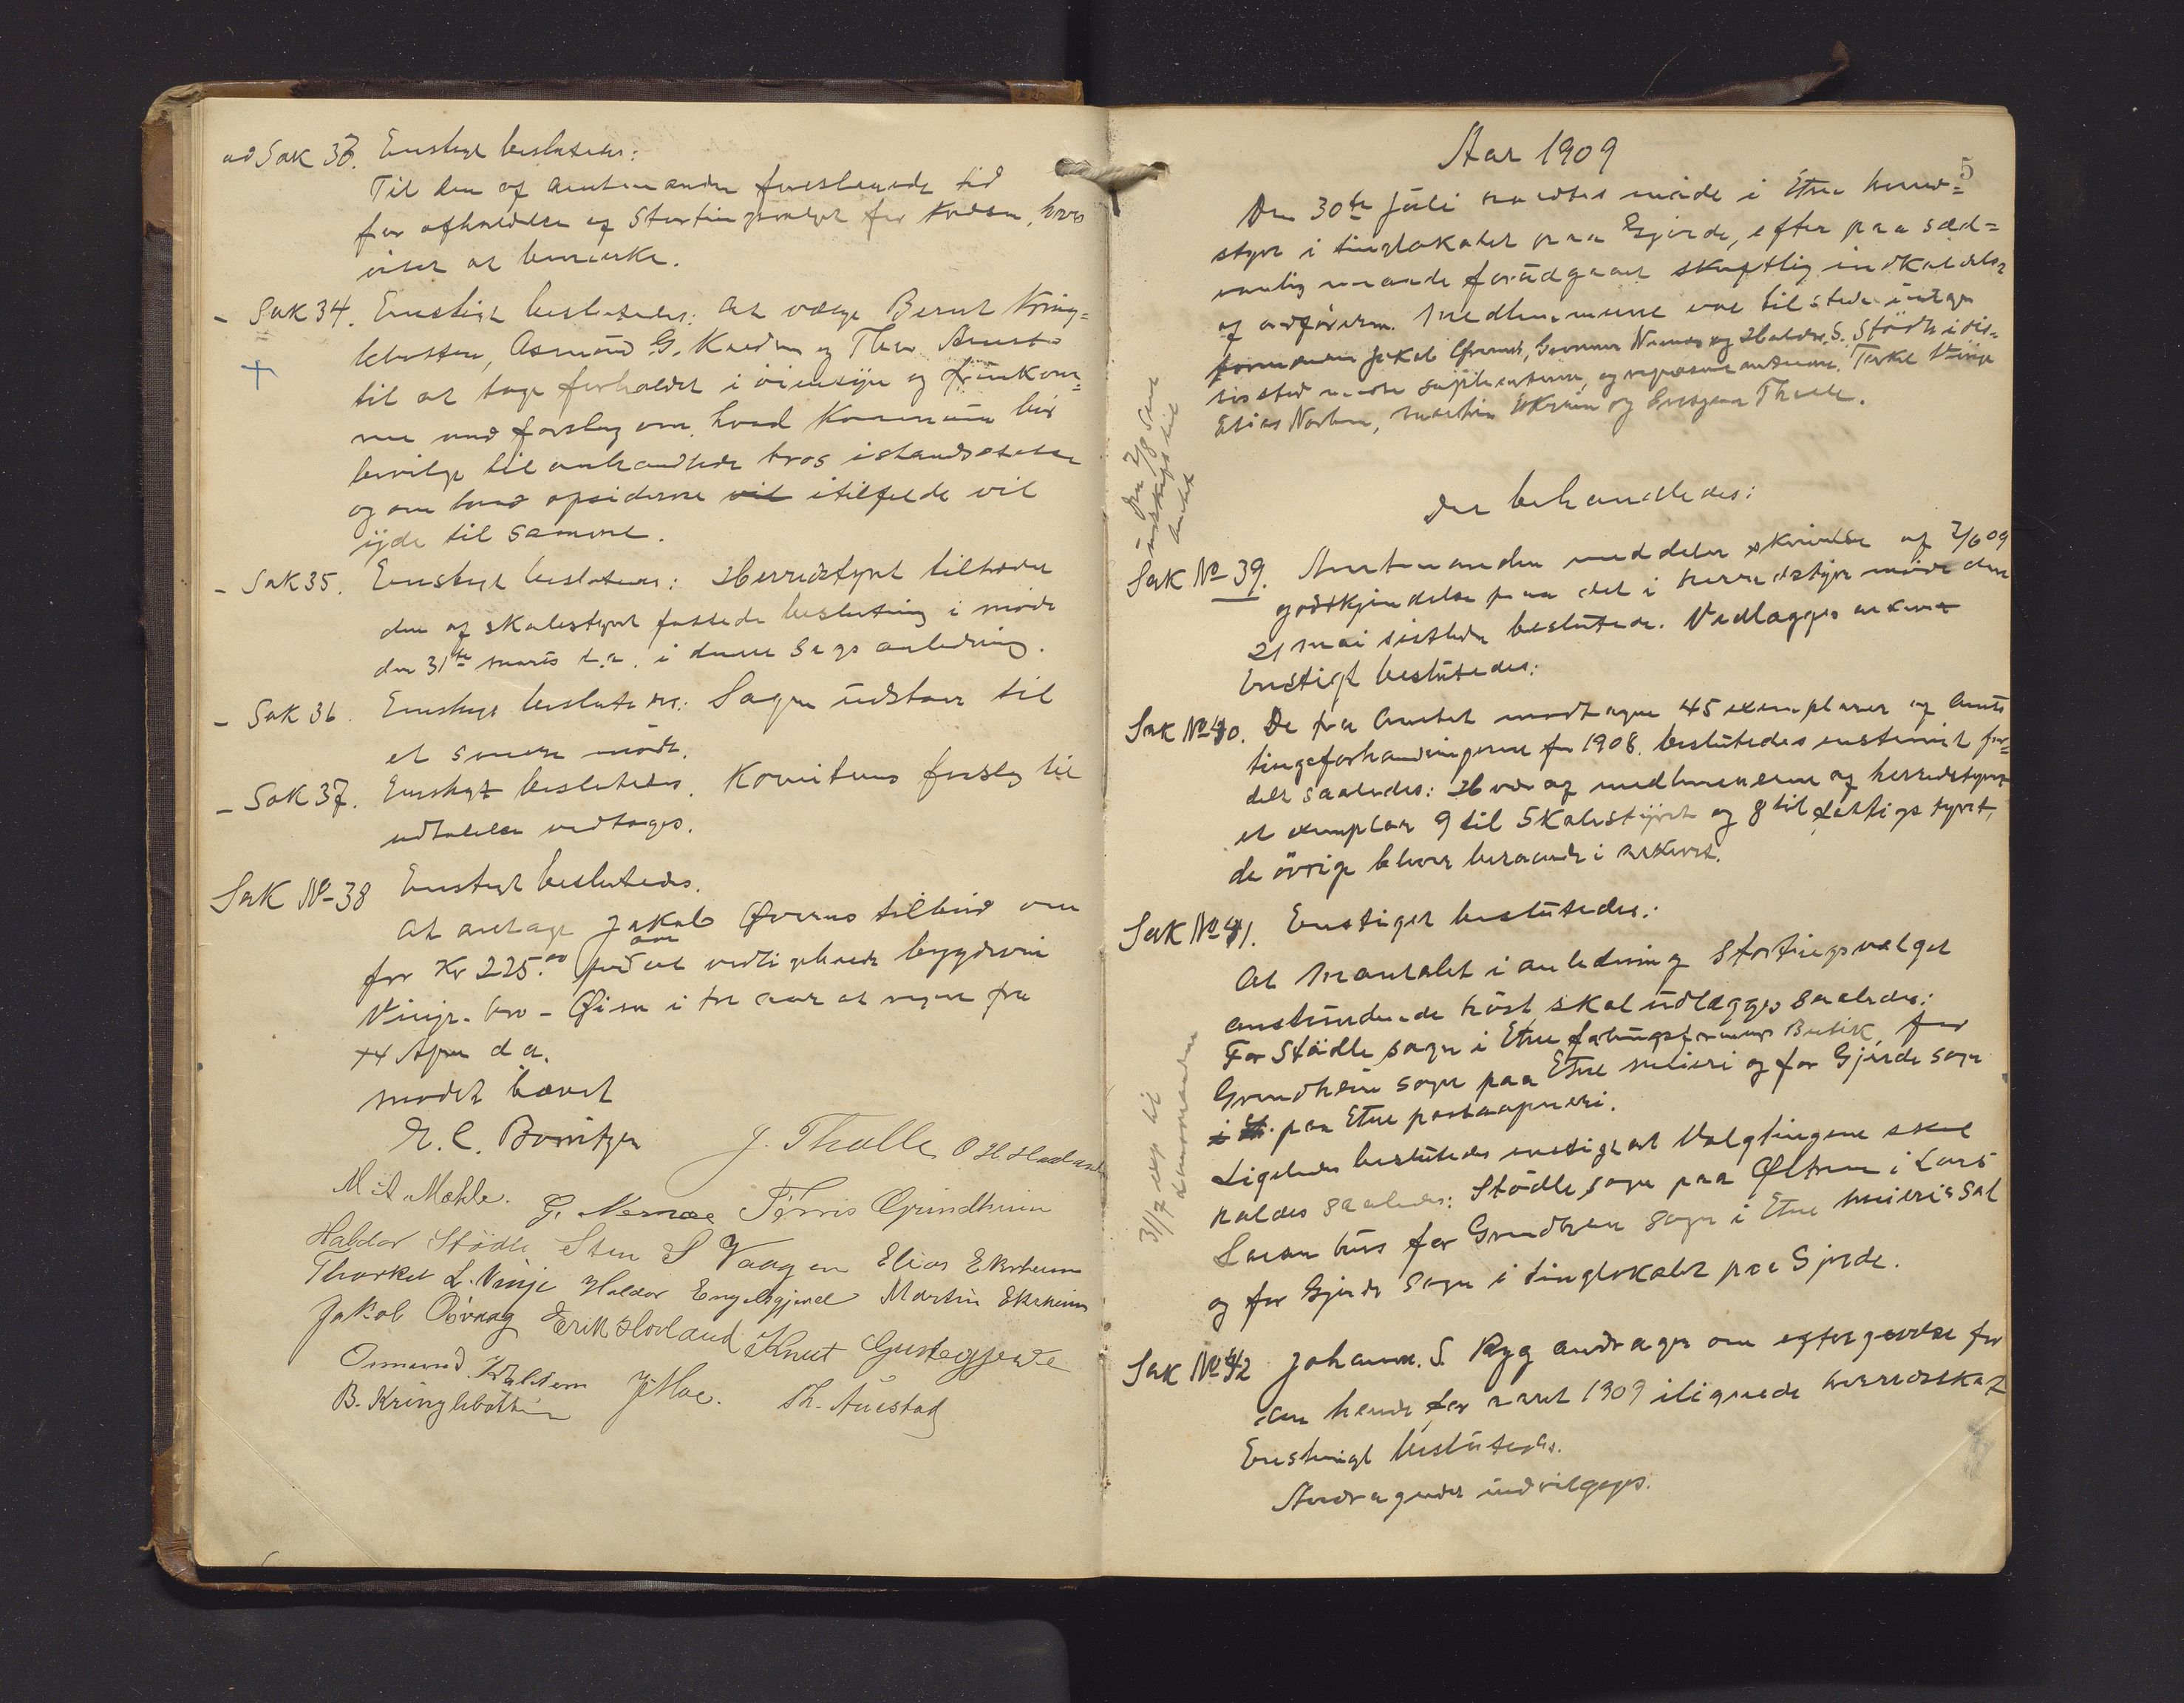 ad Sak 33. Enstigt beslutedes:
Til den af amtmanden foreslaaede tid
for afholdelse af Stortingsvalget for kredsen, haves
intet at bemærke.
- Sak 34. Enstigt beslutedes: at vælge Bernt Kring=
lebotten, Asmund G. Kaldem og Thore Austa
til at tage forholdet i øiensyn og fremkom=
me med forslag om, hvad Kommunen bør
bevilge til omhandlede bros istandsættelse
og om hvad opsiderne vil itilfælde vil
yde til samme.
- Sak 35. Enstigt beslutedes: Herredstyret tiltræder
den af skolestyret fattede beslutning i møde
den 31te marts d.a. i denne sags anledning.
- Sak 36. Enstigt beslutedes: Sagen udstaar til
et senere møde.
- Sak 37. Enstigt beslutedes. Komiteens forslag til
udtalelse vedtages.
Sak No 38 Enstigt beslutedes.
at antage Jakob Øvernes tilbud om
for Kr 225.00 pr aar at vedligeholde bygdevei
Vinje-bro - Øien i tre aar at regne fra
14 April d.a.
mødet hævet
E. C. Bornitzen J. Thalle O H Hadland
M A Mæhle. G. Nernæs Tørris Grindheim
Haldor Stødle Sten S Vaagen Elias Ekrheim
Thorkel L. Vinje Haldor Engelsgjerd Martin Ekrheim
Jakob Øivaag Erik Hovland Knut Gustegjerde
Osmund Kaldem J Moe. Th. Austad
B. Kringlebotten
Aar 1909
5
Den 30te juli holdtes møde i Etne herred=
styre i tinglokalet paa Gjerde, efter paa sæd=
vanlig maade forudgaaet skriftlig indkaldelse
af ordføreren. Medlemmerne var tilstede undtagen
formanden Jakob Grindh, Gunnar Nernæs og Haldor S. Stødle i dis=
ses sted mødte suplianterne, og repræsentanterne Torkel Vinje
Elias Norheim, Martin Ekrheim og Thalle.
Der behandledes:
Sak No 39. Amtmanden meddeler skrivelse af 2/6 09
godkjendelse paa det i herredstyre møde den
21 mai sistleden besluttede. Vedlægges arkivet
Enstigt beslutedes:
Sak No 40. De fra Amtet modtagne 45 exemplarer af Amts
tingsforhandlingerne for 1908. beslutedes enstemmit for=
delt saaledes: Hver af medlemmerne af herredstyret
et exemplar 9 til Skolestyret og 8 til fattigstyret,
de øvrige bliver beroende i arkivet.
Sak No 41. Enstiget beslutedes:
At Mantalet i anledning Stortingsvalget
anstundende høst, skal udlægges saaledes:
For Stødle sogn i Etne Butik, for
Grindheim sogn paa Etne meieri og for Gjerde sogn
i Et. paa Etne postaapneri.
Ligeledes beslutedes enstigt at Valgtingene skal
holdes saaledes: Stødle sogn paa Øltren i Lars
Larsen hus for Grindheim sogn i Etne meieris sal
og for Gjerde sogn i tinglokalet paa Gjerde.
Sak No 42 Johanne S. Ryg andrager om eftergivelse for
den hende for aaret 1909 ilignede herredsskat
Enstemigt beslutedes.
Andragendet indvilges.
Den 2/8 sendt
udskrift til
Amtet
31/7 exp til
Lensmanden